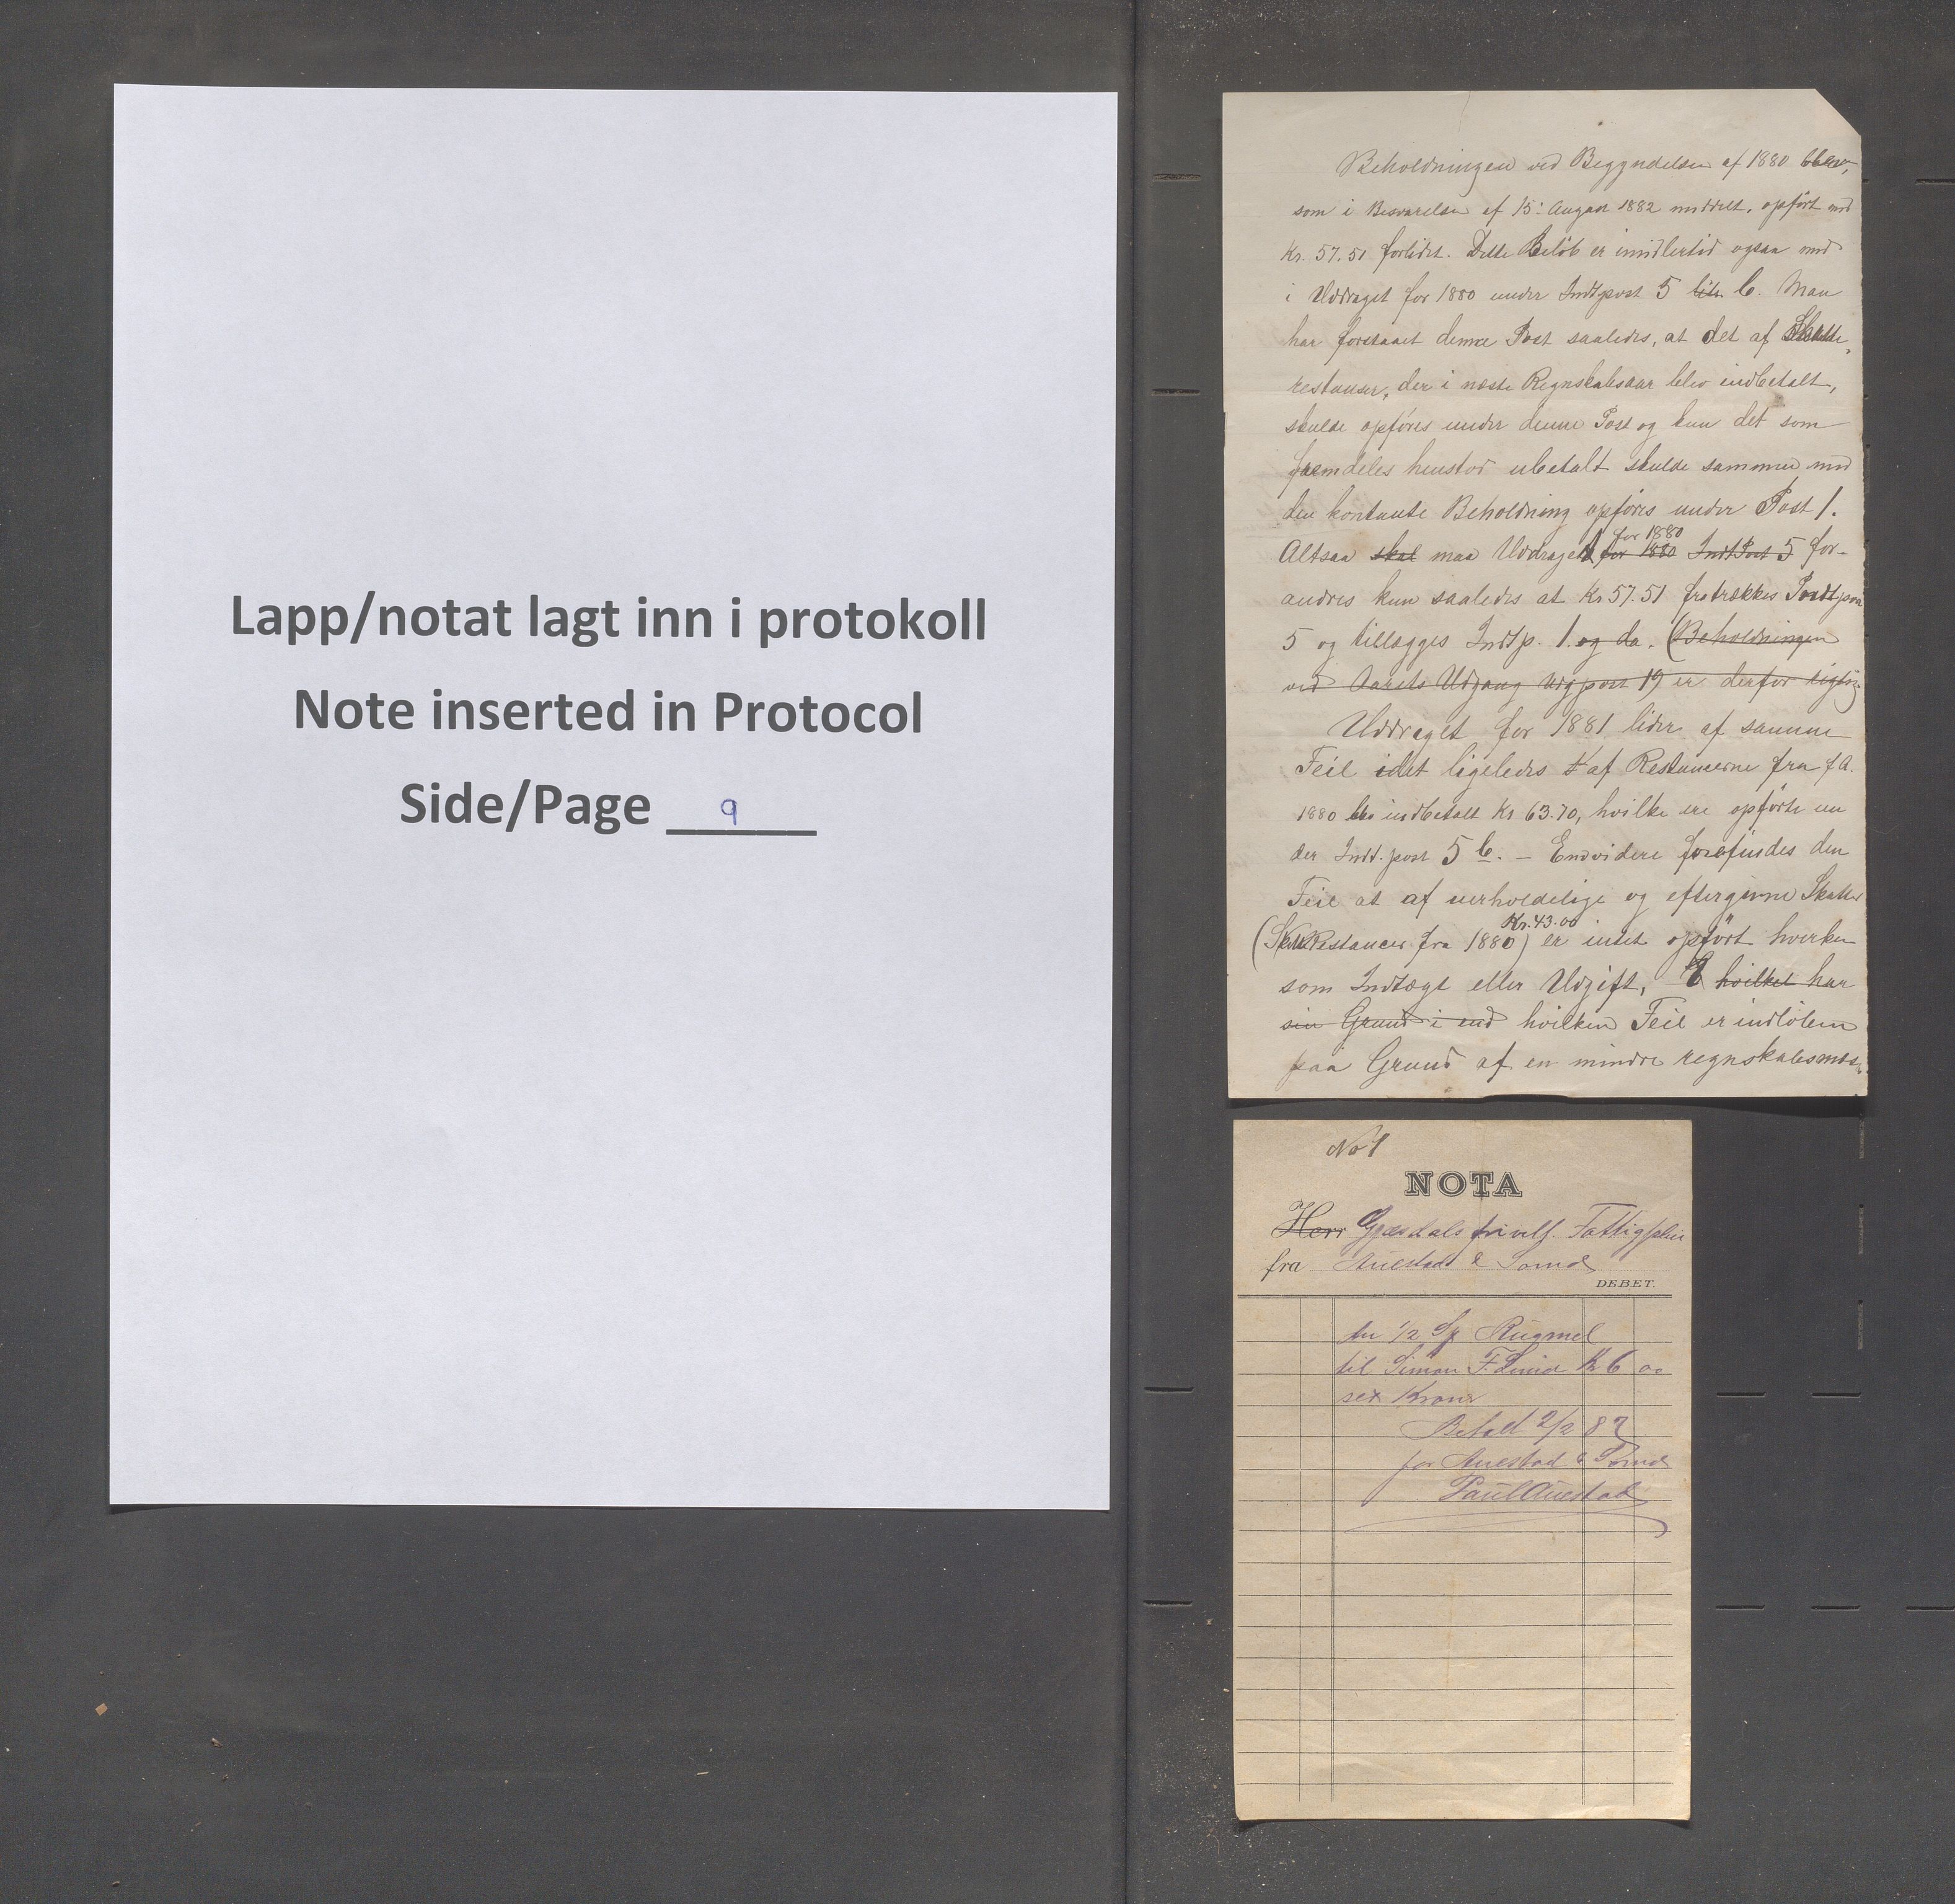 Lapp/notat lagt inn i protokoll
Note inserted in Protocol
Side/Page 9
Beholdningen ved Begyndelsen af 1880 blev,
som i Besvarelse af 15. August 1882 meddelt, opført med
Kr. 57.51 forlidet. Dette Beløb er imidlertid ogsaa med
i Uddraget for 1880 under Indtpost 5 litr b. Man
har forstaaet denne Post saaledes, at det af Skatte-
restanser, der i næste Regnskabsaar blev indbetalt,
skulde opføres under denne Post og kun det som
fremdeles henstod ubetalt skulde sammen med
den kontante Beholdning opføres under Post 1.
for 1880
Altsaa skal maa Uddraget for 1880 IndtPost 5 for-
andres kun saaledes at Kr. 57.51 fratrækkes Indtpost
5 og tillægges Indtp. 1. og da. (Beholdningen
ved Aarets Udgang Udgpost 19) er derfor rigtig
Uddraget for 1881 lider af samme
Feil idet ligeledes af Restancerne fra f A.
1880 blev indbetalt Kr 63.70, hvilke ere opførte un
der Indt. post 5 b. – Endvidere forefindes den
Feil at af uerholdelige og eftergivne Skatter
Kr. 43.00
(Skatterestancer fra 1880) er intet opført hverken
som Indtægt eller Udgift, hvilket har
sin Grund i end hvilken Feil er indløben
paa Grund af en mindre regnskabsmæs
No 1
NOTA
Herr Gjesdals Fattig
fra Auestad & Lomd
DEBET.
1/2 Rugmel
til Simon F. Kr 6 00
sex Kroner
Betalt 2/2 87
for Auestad &
Paul Auestad